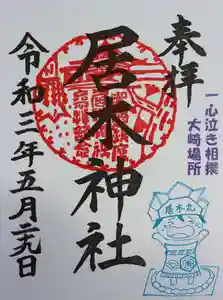 奉拝
一心泣き相撲
大崎場所
居木神社
令和三年五月二九日
居木丸